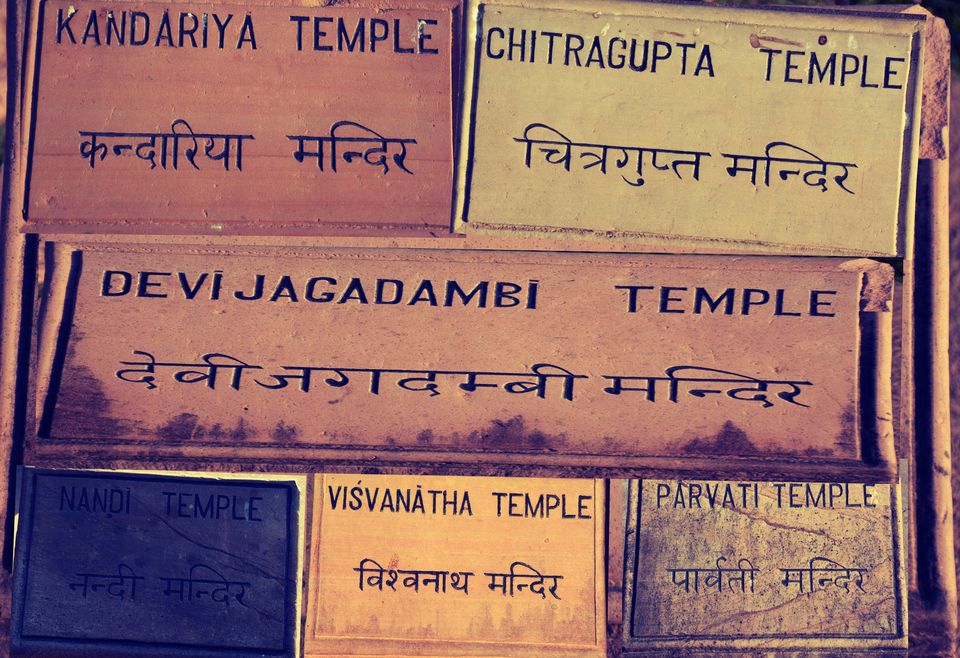 KANDĀRIYĀ TEMPLE
कन्दारिया मन्दिर
CHITRAGUPTA TEMPLE
चित्रगुप्त मन्दिर
DEVĪ JAGADAMBĪ TEMPLE
देवी जगदम्बी मन्दिर
NANDĪ TEMPLE
नन्दी मन्दिर
VIŚVANĀTHA TEMPLE
विश्वनाथ मन्दिर
PĀRVATĪ TEMPLE
पार्वती मन्दिर